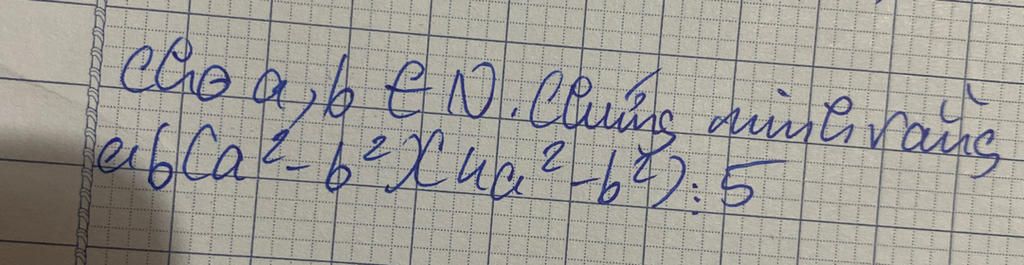 cho a, b ∈ N. Chứng minh rằng
ab(a² - b²)(4a² - b²) : 5